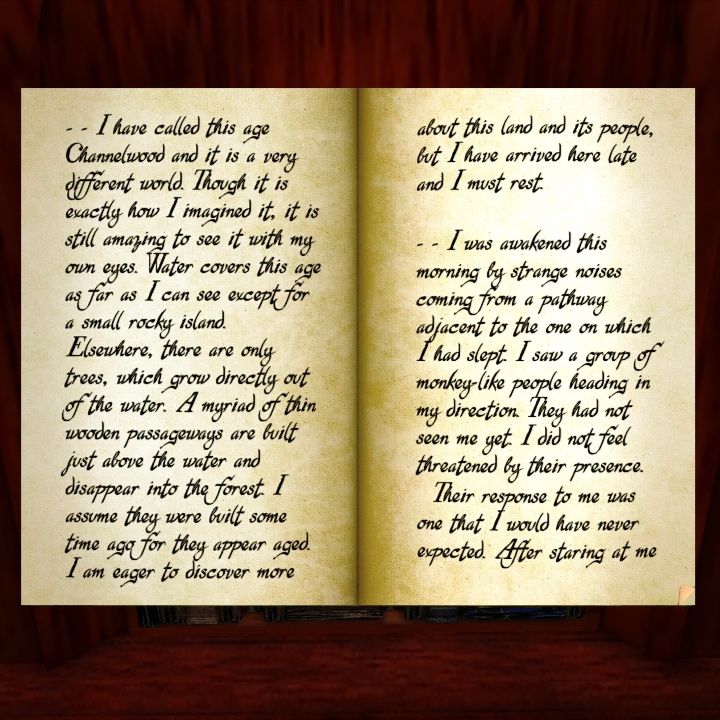 - - I have called this age
Channelwood and it is a very
different world. Though it is
exactly how I imagined it, it is
still amazing to see it with my
own eyes. Water covers this age
as far as I can see except for
a small rocky island.
Elsewhere, there are only
trees, which grow directly out
of the water. A myriad of thin
wooden passageways are built
just above the water and
disappear into the forest. I
assume they were built some
time ago for they appear aged.
I am eager to discover more
about this land and its people,
but I have arrived here late
and I must rest.
- - I was awakened this
morning by strange noises
coming from a pathway
adjacent to the one on which
I had slept. I saw a group of
monkey-like people heading in
my direction. They had not
seen me yet. I did not feel
threatened by their presence.
Their response to me was
one that I would have never
expected. After staring at me